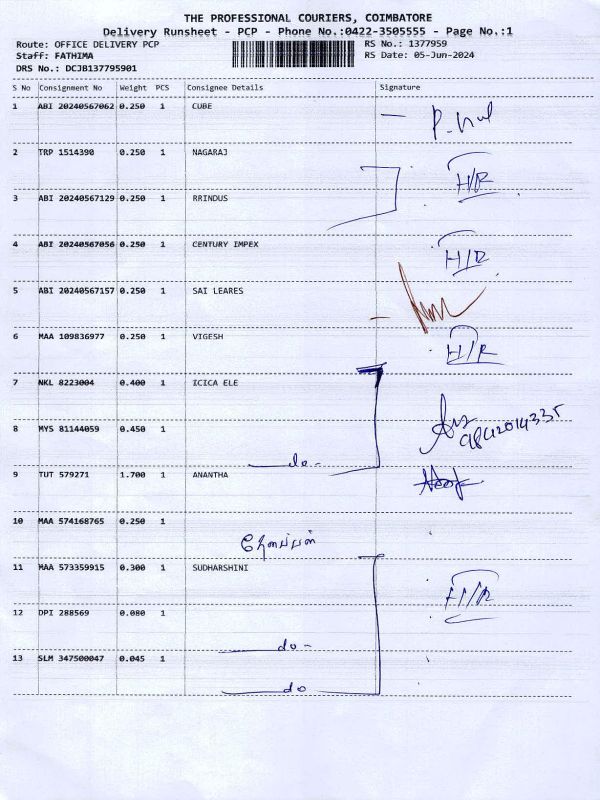 THE PROFESSIONAL COURIERS, COIMBATORE
Delivery Runsheet - PCP - Phone No.:0422-3505555 - Page No.:1
Route: OFFICE DELIVERY PCP RS No.: 1377959
Staff: FATHIMA RS Date: 05-Jun-2024
DRS No.: DCJB137795901
S No Consignment No Weight PCS Consignee Details Signature
1 ABI 20240567062 0.250 1 CUBE
2 TRP 1514390 0.250 1 NAGARAJ H/R
3 ABI 20240567129 0.250 1 RRINDUS
4 ABI 20240567056 0.250 1 CENTURY IMPEX H/R
5 ABI 20240567157 0.250 1 SAI LEARES
6 MAA 109836977 0.250 1 VIGESH H/R
7 NKL 8223004 0.400 1 ICICA ELE
8 MYS 81144059 0.450 1 9842014335
do-
9 TUT 579271 1.700 1 ANANTHA
10 MAA 574168765 0.250 1
11 MAA 573359915 0.300 1 SUDHARSHINI H/R
12 DPI 288569 0.080 1
do-
13 SLM 347500047 0.045 1
do